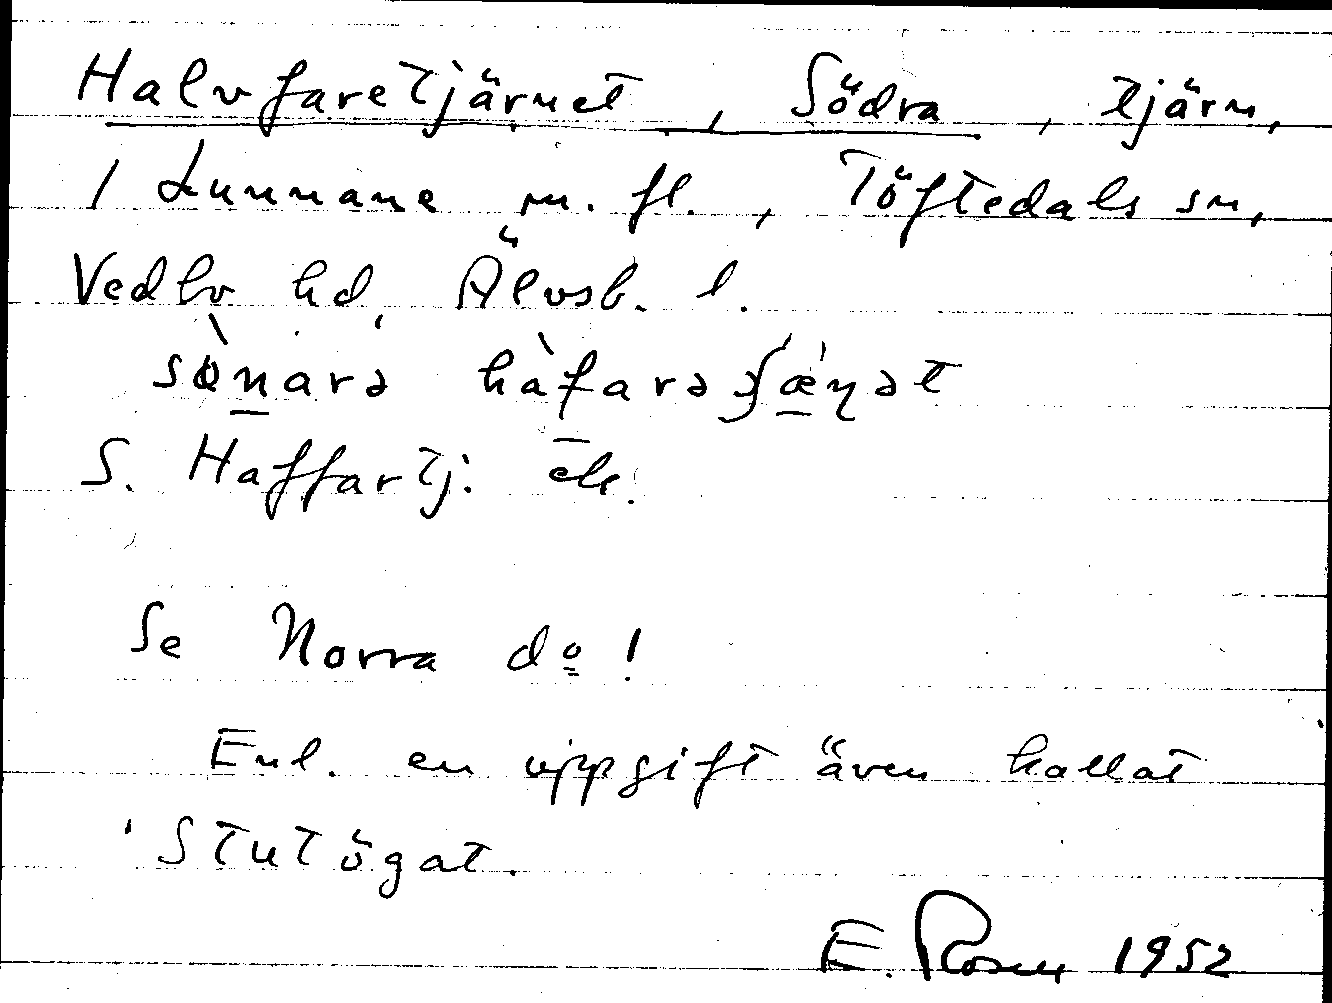 Halvfaretjärnet, Södra, tjärn,
1 Lunnane m. fl., Töftedals sn,
Vedbo hd, Älvsb. l.
S. Haffartj. ek.
Se Norra do!
Enl. en uppgift även kallat
'Stutögat.
E. Rosen 1952